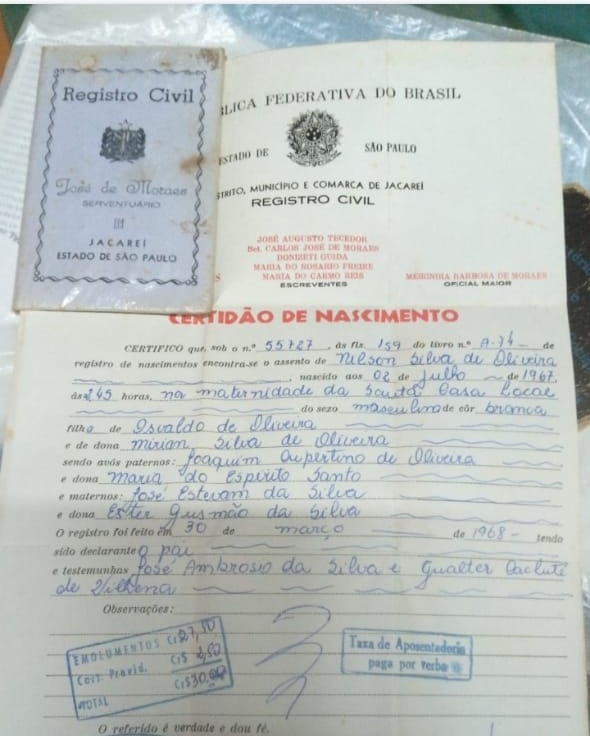 Registro Civil
José de Moraes
SERVENTUÁRIO
JACAREÍ
ESTADO DE SÃO PAULO
BLICA FEDERATIVA DO BRASIL
ESTADO DE SÃO PAULO
STRITO, MUNICÍPIO E COMARCA DE JACAREÍ
REGISTRO CIVIL
JOSÉ AUGUSTO TECEDOR
Bel. CARLOS JOSÉ DE MORAES
DONIZETI GUIDA
MARIA DO ROSARIO FREIRE
MARIA DO CARMO REIS
ESCREVENTES
MEIRINIRA BARBOSA DE MORAES
OFICIAL MAIOR
CERTIDÃO DE NASCIMENTO
CERTIFICO que, sob o n.º 55727, às fls. 159 do livro n.º A-74 - de
registro de nascimentos encontra-se o assento de Nilson Silva de Oliveira
, nascido aos 02 de Julho de 1967,
às 245 horas, na maternidade da Santa Casa Local
do sexo masculino de côr branca
filho de Osvaldo de Oliveira
e de dona Mirian Silva de Oliveira
sendo avós paternos: Joaquim Cupertino de Oliveira
e dona Maria do Espirito Santo
e maternos: José Estevam da Silva
e dona Ester Gusmão da Silva
O registro foi feito em 30 de março de 1968 - tendo
sido declarante o pai
e testemunhas José Ambrosio da Silva e Gualter
de Vilhena
Observações:
EMOLUMENTOS Cr$ 27,50
Cart. Previd. Cr$ 2,50
TOTAL Cr$ 30,00
Taxa de Aposentadoria
paga por verba
O referido é verdade e dou fé.